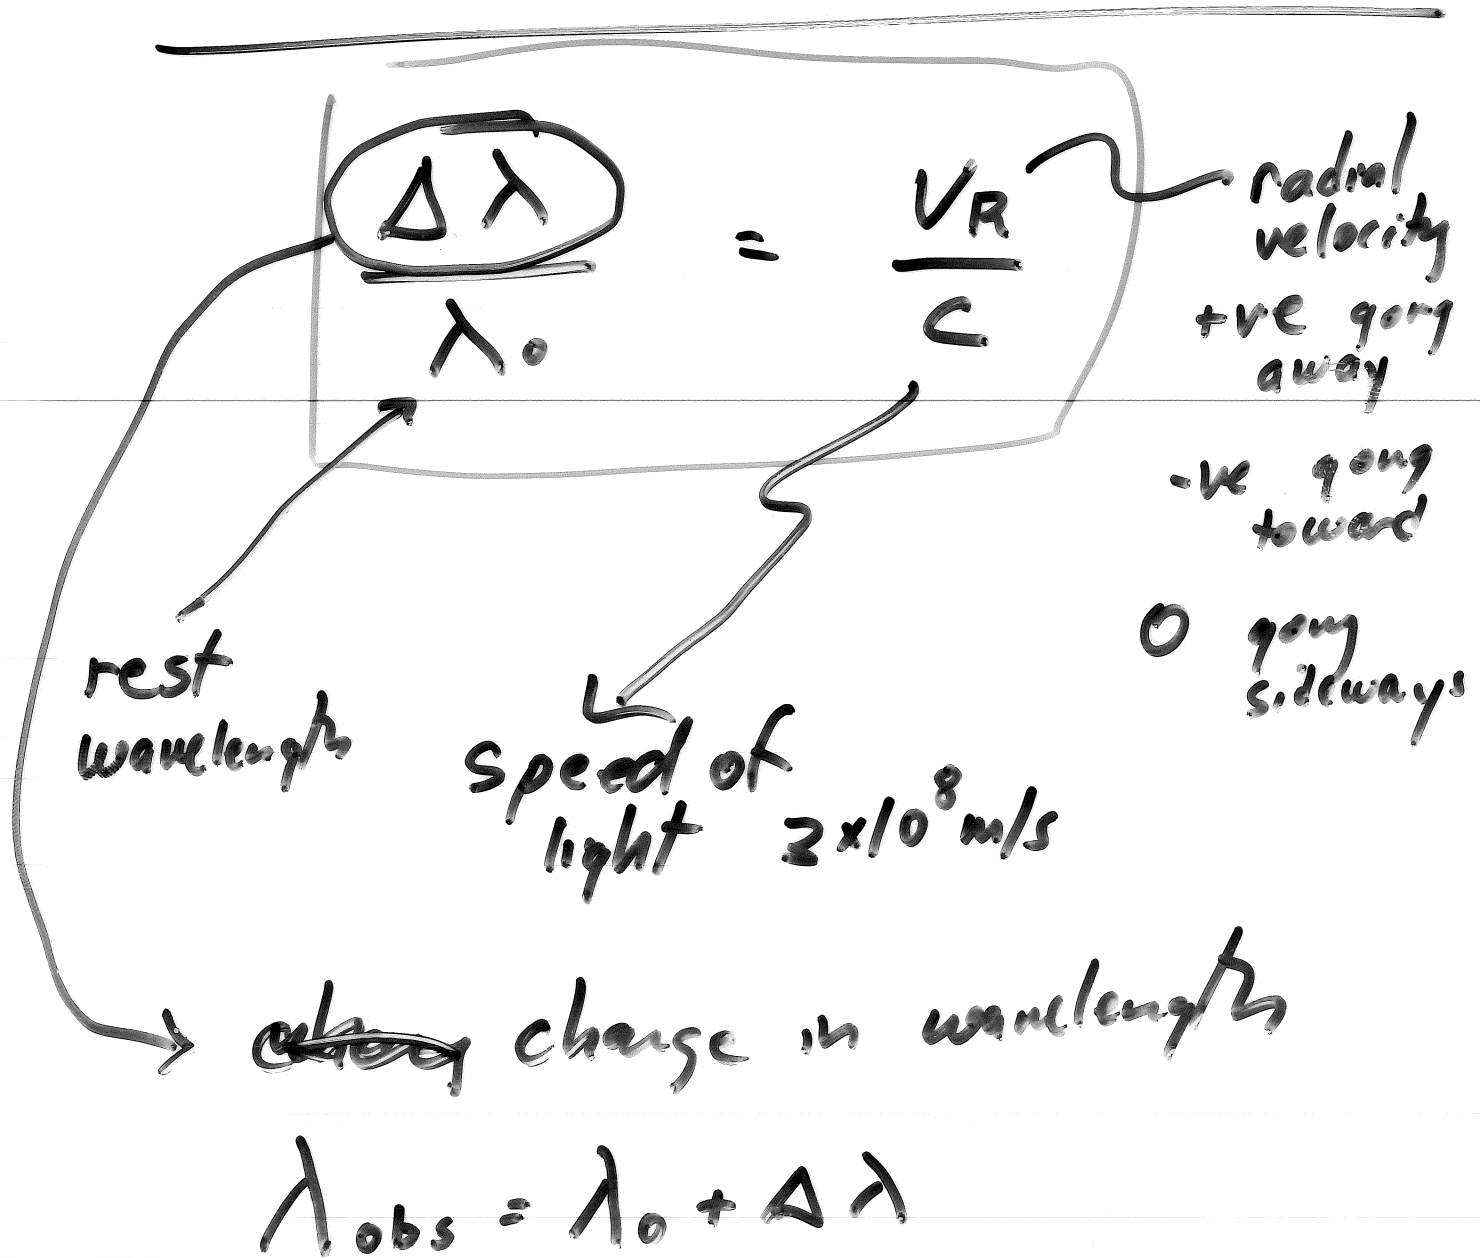 Δλ / λ₀ = VR / C
radial
velocity
+ve going
away
-ve going
toward
0 going
sideways
rest
wavelength
speed of
light 3x10⁸ m/s
change in wavelength
λobs = λ₀ + Δλ